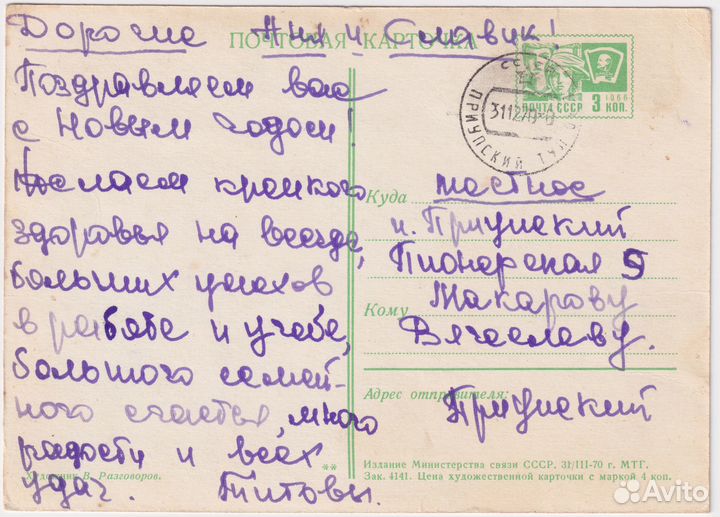 Дорогие Аня и Славик!
ПОЧТОВАЯ КАРТОЧКА
Поздравляем вас
с Новым годом!
Желаем крепкого
здоровья на всегда,
больших успехов
в работе и учебе,
большого семей-
ного счастья, много
радости и всех
удач. Титовы.
ПОЧТА СССР 1966
3 КОП.
311270
ПРИУПСКИЙ ТУЛ
Куда местное
п. Приупский
Пионерская 5
Кому Макарову
Вячеславу.
Адрес отправителя:
Приупский
Художник В. Разговоров.
**
Издание Министерства связи СССР. 31/III-70 г. МТГ.
Зак. 4141. Цена художественной карточки с маркой 4 коп.
Avito